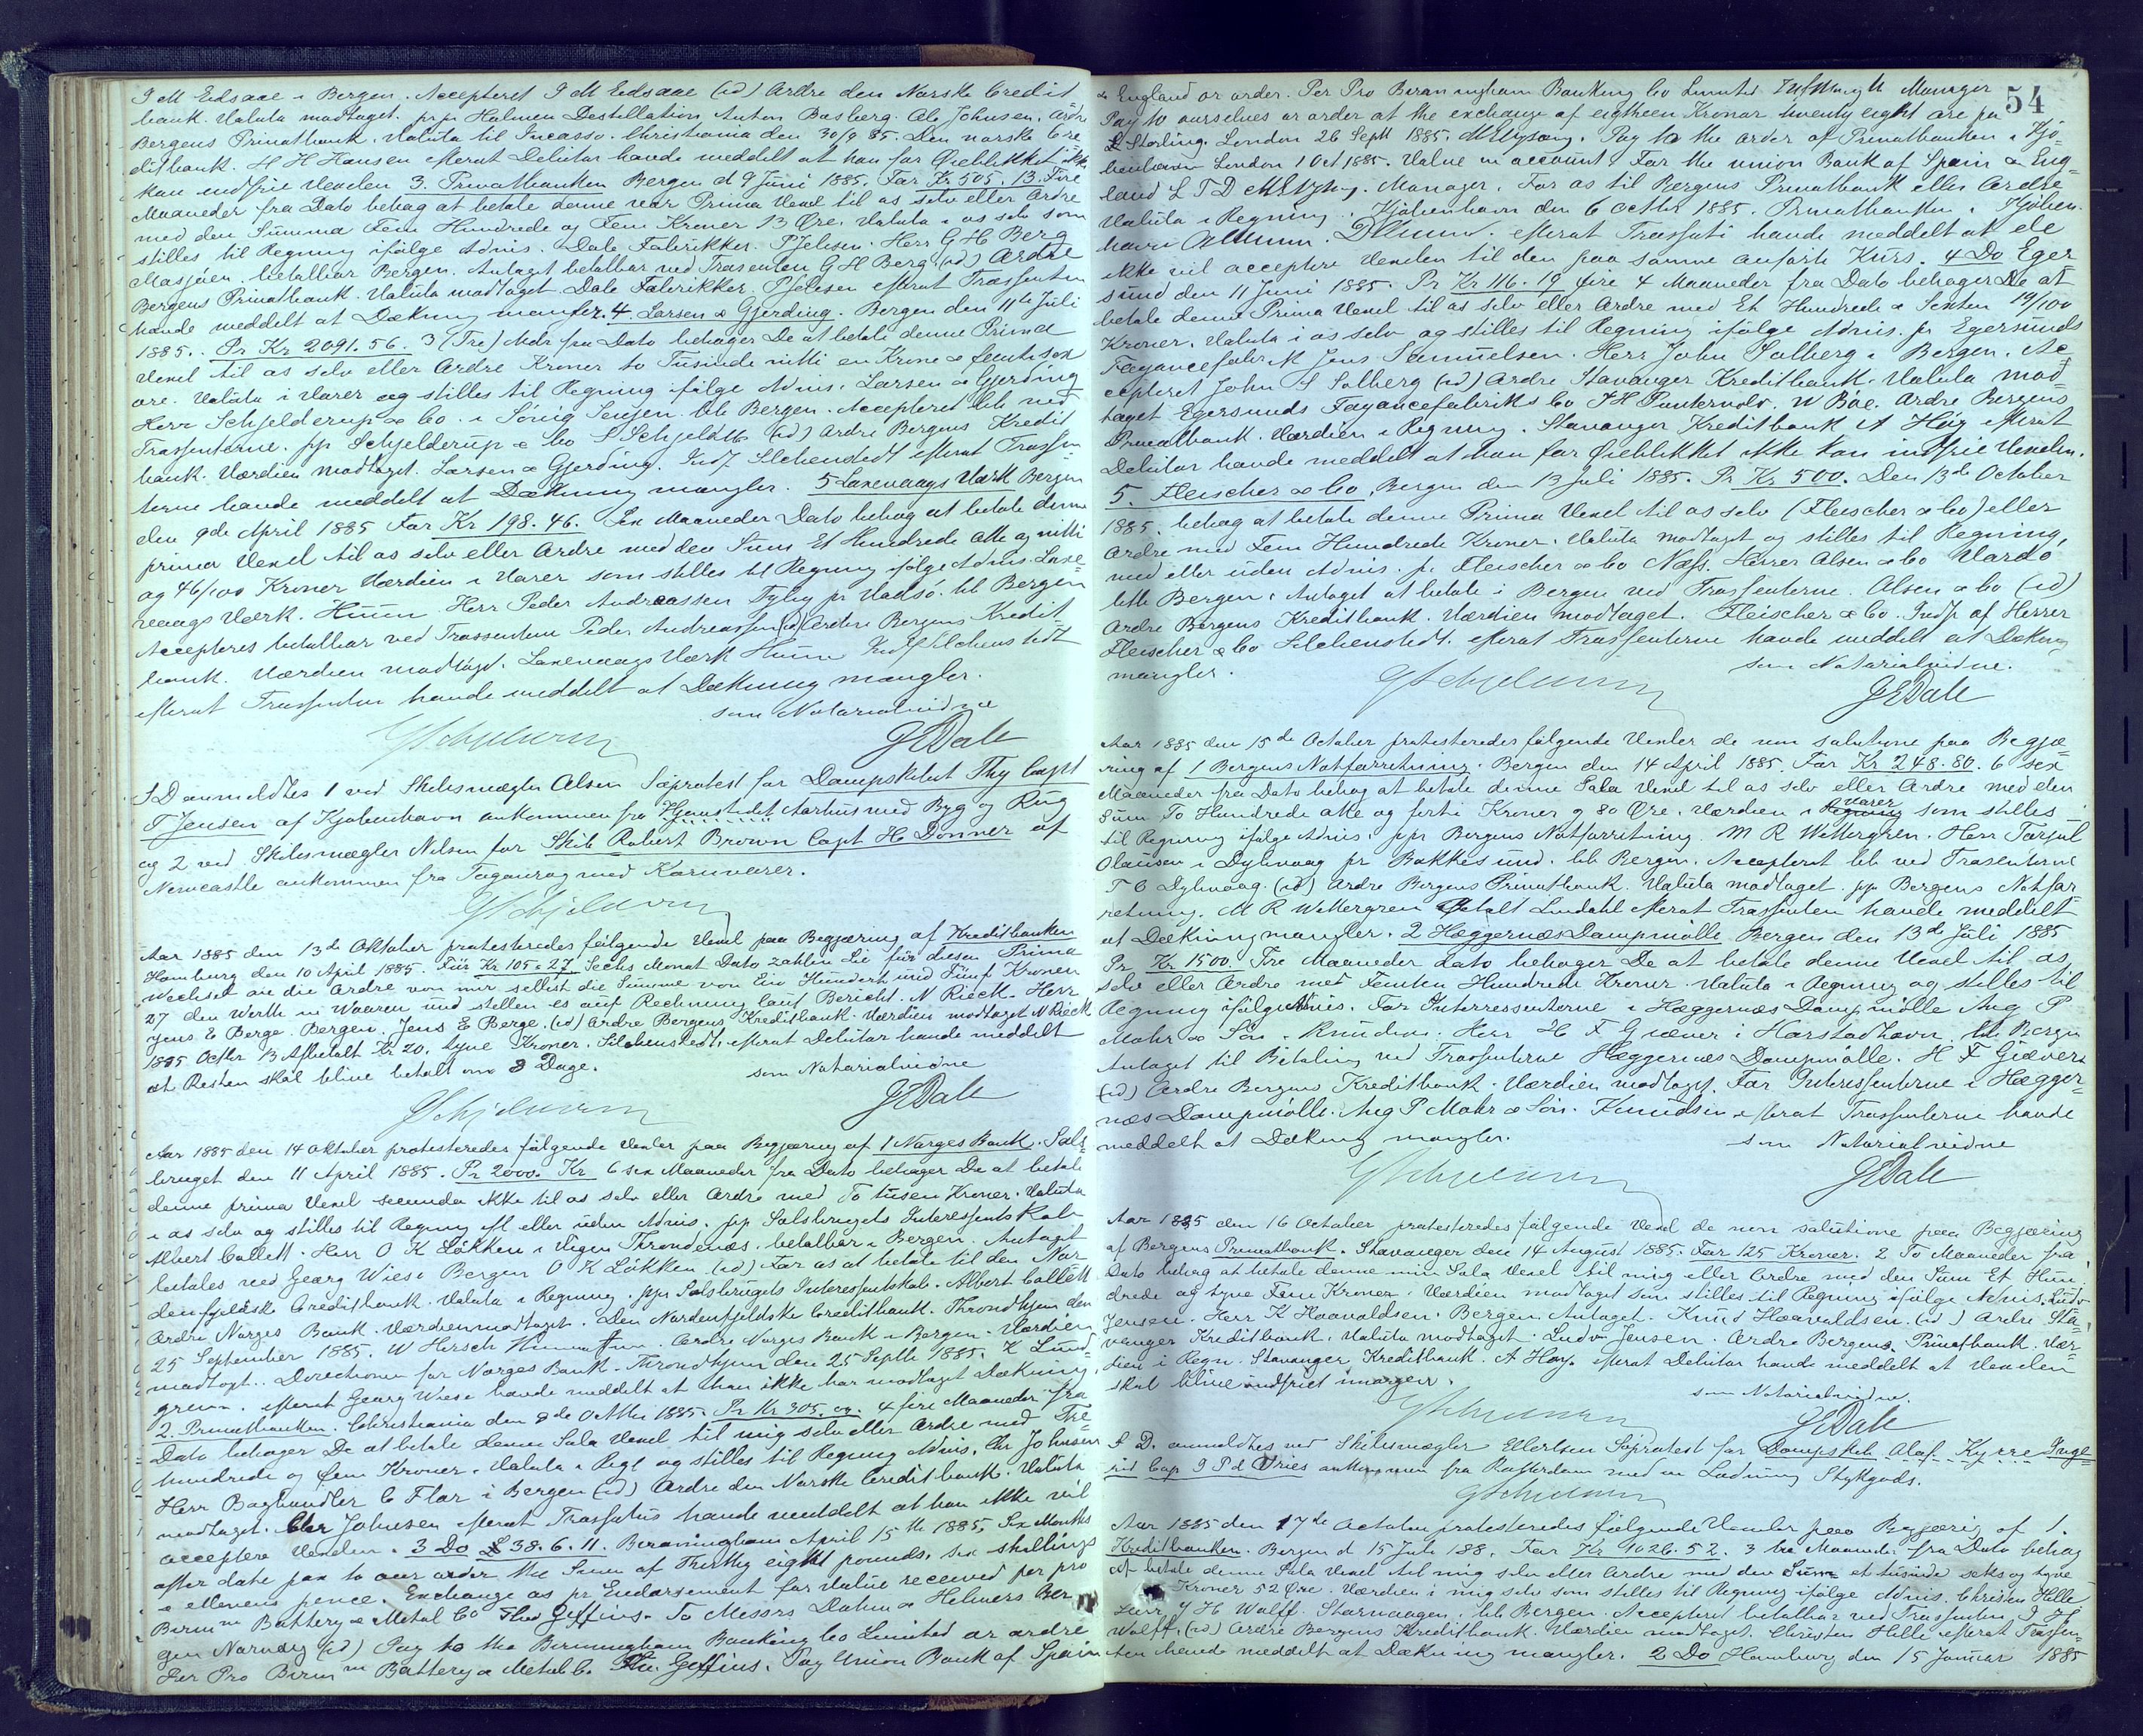 I M Eidsaae i Bergen. Accepteret I M Eidsaae (id) Ordre den Norske Credit
bank. Valuta modtaget. prpr Holmen Destillation Anton Basberg. Ole Johnsen. Ordre
Bergens Privatbank. Valuta til Incasso. Christiania den 30/9 85. Den norske Cre
ditbank. H H Hansen efterat Debitor havde meddelt at han for Øieblikket ikke
kan indfrie Vexelen 3. Privatbanken Bergen d 9 Juni 1885. For Kr 505.13. Fire
Maaneder fra Dato behag at betale denne vor Prima Vexel til os selv eller Ordre
med den Summa Fem Hundrede og Fem Kroner 13 Øre. Valuta i os selv som
stilles til Regning ifølge Advis. Dale Fabrikker. P Jebsen. Herr G H Berg
Mosjøen, betalbar Bergen. Antaget betalbar ved Trasenten G H Berg (id) Ordre
Bergens Privatbank. Valuta modtaget. Dale Fabrikker. P Jebsen efterat Trassenten
havde meddelt at Dækning mangler. 4 Larsen & Gjerding. Bergen den 11te Juli
1885. Pr Kr 2091.56. 3 (Tre) Mdr fra Dato behager De at betale denne Prima
Vexel til os selv eller Ordre Kroner to Tusinde nitti en Krone & femti sex
øre. Valuta i Varer og stilles til Regning ifølge Advis. Larsen & Gjerding
Herr Schjelderup & Co i Sörrig Senjen. btb Bergen. Accepteret btb ved
Trassenterne. pp Schjelderup & Co S Schjeldrup (id) Ordre Bergens Kredit
bank. Værdien modtaget. Larsen & Gjerding. Indf Silchenstedt efterat Trassen
terne havde meddelt at Dækning mangler. 5 Laxevaags Værk Bergen
den 9de April 1885 For Kr 198.46. Sex Maaneder Dato behag at betale denne
prima Vexel til os selv eller Ordre med den Sum Et Hundrede otte og nitti
og 46/100 Kroner Værdien i Varer som stilles til Regning ifølge Advis. Laxe
vaags Værk. Huun. Herr Peder Andreassen Tyby pr Vadsö. btb Bergen
Accepteres betalbar ved Trassenten Peder Andreassen (id) Ordre Bergens Kredit
bank. Værdien modtaget. Laxevaags Værk Huun Indf Silchenstedt
efterat Trassenten havde meddelt at Dækning mangler.
som Notarialvidne
G Schjelderup
J E Dale
S D anmeldtes 1 ved Skibsmægler Olsen Søprotest for Dampskibet Thy Capt
T Jensen af Kjøbenhavn ankommen fra Hjemstedet Aarhus med Byg og Rug
og 2 ved Skibsmægler Nilsen for Skib Robert Brown Capt H Donner af
Newcastle ankommen fra Taganrog med Kornvarer.
Aar 1885 den 13de Oktober protesteredes følgende Vexel paa Begjæring af Kreditbanken
Hamburg den 10 April 1885. Für Kr 105.27 Sechs Monat Dato zahlen Sie für diesen Prima
Wechsel an die Ordre von mir selbst die Summe von Ein Hundert und Fünf Kronen
27 den Werth in Waaren und stellen es auf Rechnung laut Bericht. N Rieck. Herr
Jens E Berge. Bergen. Jens E Berge. (id) Ordre Bergens Kreditbank. Værdien modtaget N Rieck
1885 Octbr 13 Afbetalt Kr 20. tyve Kroner. Silchenstedt. efterat Debitor havde meddelt
at Resten skal blive betalt om 3 Dage.
som Notarialvidne
J E Dale
Aar 1885 den 14 Oktober protesteredes følgende Vexler paa Begjæring af 1 Norges Bank. Sals
bruget den 11 April 1885. Pr 2000. Kr 6 sex Maaneder fra Dato behager De at betale
denne prima Vexel secunda ikke til os selv eller Ordre med To tusen Kroner. Valuta
i os selv og stilles til Regning eft eller uden Advis. pp Salsbrugets Interessentskab
Albert Collett. Herr O K Løkken i Vigen Throndenæs, betalbar i Bergen. Antaget
betales ved Georg Wiese Bergen O K Løkken (id) For os at betale til den Nor
denfjeldske Creditbank. Valuta i Regning. pp Salsbrugets Interessentskab. Albert Collett
Ordre Norges Bank. Værdien modtaget. Den Nordenfjeldske Creditbank. Throndhjem den
25 September 1885. W Hirsch. Ordre Norges Bank i Bergen. Værdien
modtagt.. Directionen for Norges Bank. Throndhjem den 25 Septbr 1885. K Lund
green. efterat Georg Wiese havde meddelt at han ikke har modtaget Dækning.
2. Privatbanken. Christiania den 8de Octbr 1885. Pr Kr 305. og. 4 fire Maaneder fra
Dato behager De at betale denne Sola Vexel til mig selv eller Ordre med Tre
hundrede og fem Kroner. Valuta i Regt og stilles til Regning Advis. Chr Johnsen
Herr Boghandler C Flor i Bergen (id) Ordre den Norske Creditbank. Valuta
modtaget. Chr Johnsen efterat Trassatus havde meddelt at han ikke vil
acceptere Vexelen. 3 Do £ 38.6.11. Birmingham April 15th 1885. Six Months
after date pay to our order the Sum of Thirthy eight pounds. six shillings
& ellevens pence. Exchange as pr Endorsement for Value received per pro
Birmm Battery & Metal Co Theo Gieffins. To Messrs Dahm & Helmers Ber
gen Norway (id) Pay to the Birmingham Banking Co Limited or ordre
Per Pro Birmm Battery & Metal Co. Theo Gieffins. Pay Union Bank of Spain
54
& England or order. Per Pro Birmingham Banking Co Limited Manager
Pay to ourselves or order at the exchange of eighteen Kronor twenty eight øre pr
£ Sterling. London 26 Sept 1885. Pay to the order of Privatbanken i Kjø
benhavn London 1 Oct 1885. Value in account. For the union Bank of Spain & Eng
land L T D. Manager. For os til Bergens Privatbank eller Ordre
Valuta i Regning. Kjøbenhavn den 6 Octbr 1885. Privatbanken i Kjøben
havn. efterat Trassati havde meddelt at de
ikke vil acceptere Vexelen til den paa samme anførte Kurs. 4 Do Eger
sund den 11 Juni 1885. Pr Kr 116.19 fire 4 Maaneder fra Dato behager De at
betale denne Prima Vexel til os selv eller Ordre med Et Hundrede & Sexten 19/100
Kroner. Valuta i os selv og stilles til Regning ifølge Advis. pr Egersunds
Fayancefabrik Jens Samuelsen. Herr John Solberg i Bergen. Ac
cepteret John S Solberg (id) Ordre Stavanger Kreditbank. Valuta mod
taget Egersunds Fayancefabriks Co J H Puntervold. W Bøe. Ordre Bergens
Privatbank. Værdien i Regning. Stavanger Kreditbank A Høy efterat
Debitor havde meddelt at han for Øieblikket ikke kan indfrie Vexelen.
5. Fleischer & Co. Bergen den 13 Juli 1885. Pr Kr 500. Den 13de October
1885. behag at betale denne Prima Vexel til os selv (Fleischer & Co) eller
Ordre med Fem Hundrede Kroner. Valuta modtaget og stilles til Regning,
med eller uden Advis. pr Fleischer & Co Næss. Herrer Olsen & Co Vardö
btb Bergen. Antaget at betale i Bergen ved Trassenterne. Olsen & Co (id)
Ordre Bergens Kreditbank. Værdien modtaget. Fleischer & Co. Indf af Herrer
Fleischer & Co Silchenstedt. efterat Trassenterne havde meddelt at Dækning
mangler.
som Notarialvidne.
J E Dale
Aar 1885 den 15de October protesteredes følgende Vexler de non solutione paa Begjæ
ring af 1 Bergens Notforretning. Bergen den 14 April 1885. For Kr 248.80. 6 sex
Maaneder fra Dato behag at betale denne Sola Vexel til os selv eller Ordre med den
Sum To Hundrede otte og forti Kroner og 80 Øre. Værdien i Regning Varer som stilles
til Regning ifølge Advis. ppr Bergens Notforretning. M R Wettergren. Herr Torjul
Olausen i Dybvaag pr Bakkesund. btb Bergen. Accepteret btb ved Trasenterne
T O Dybvaag. (id) Ordre Bergens Privatbank. Valuta modtaget. pp Bergens Notfor
retning. M R Wettergren Betalt Lindahl efterat Trassenten havde meddelt
at Dækning mangler. 2 Hæggernæs Dampmølle Bergen den 13de Juli 1885
Pr Kr 1500. Tre Maaneder dato behager De at betale denne Vexel til os
selv eller Ordre met Femten Hundrede Kroner. Valuta i Regning og stilles til
Regning ifølge Advis. For Interressenterne i Hæggernæs Dampmølle Aug P
Mohr & Søn. Knudsen. Herr H F Giæver i Harstadhavn, btb Bergen
Antaget til Betaling ved Trassenterne Hæggernæs Dampmølle. H F Giæver
(id) Ordre Bergens Kreditbank. Værdien modtaget. For Interessenterne i Hægger
næs Dampmølle. Aug P Mohr & Søn. Knudsen. efterat Trassenterne havde
meddelt at Dækning mangler.
som Notarialvidne
J E Dale
Aar 1885 den 16 October protesteredes følgende Vexel de non solutione paa Begjæring
af Bergens Privatbank. Stavanger den 14 August 1885. For 125 Kroner. 2 To Maaneder fra
Dato behag at betale denne min Sola Vexel til mig eller Ordre med den Sum Et Hun
drede og tyve Fem Kroner. Værdien modtaget som stilles til Regning ifølge Advis. Ludv
Jensen. Herr K Haavaldsen. Bergen. Antaget. Knud Haavaldsen. (id) Ordre Sta
vanger Kreditbank. Valuta modtaget. Ludv Jensen. Ordre Bergens Privatbank. Vær
dien i Regn. Stavanger Kreditbank. A Høy. efterat Debitor havde meddelt at Vexelen
skal blive indfriet imorgen.
som Notarialvidne.
J E Dale
S D. anmeldtes ved Skibsmægler Ellertsen Søprotest for Dampskib Olaf Kyrre Inge
rid Cap J P d Vries ankommen fra Rotterdam med en Ladning Stykgods.
Aar 1885 den 17de October protesteredes følgende Vexler paa Begjæring af 1.
Kreditbanken. Bergen d 15 Juli 188. For Kr 1026.52. 3 tre Maaneder fra Dato behag
at betale denne Sola Vexel til mig selv eller Ordre med den Sum et tusinde seks og tyve
Kroner 52 Øre. Værdien i mig selv som stilles til Regning ifølge Advis. Christen Hille
Herr J H Wolff. Starvaagen. btb Bergen. Accepteret betalbar ved Trassenten J H
Wolff. (id) Ordre Bergens Kreditbank. Værdien modtaget. Christen Hille efterat Trassen
ten havde meddelt at Dækning mangler. 2 Do Hamburg den 15 Januar 1885